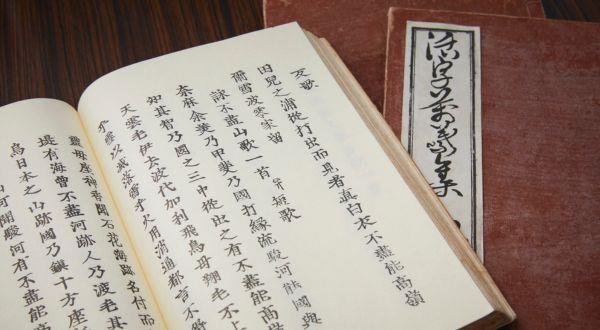 反歌
田兒之浦從打出而見者眞白衣不盡能高嶺
爾雪波零家留
詠不盡山歌一首并短歌
奈麻余美乃甲斐乃國打縁流駿河能國與
知其智乃國之三中從出之有不盡能高
天雲毛伊去波代加利飛鳥母翔毛不上
乎雪以滅落雪乎火用消通都言不
靈母座神香聞石花海跡名付而
堤有海曾不盡河跡人乃渡毛其
烏日本之山跡國乃鎮十方座
山可聞駿河有不盡能高
活字萬葉集